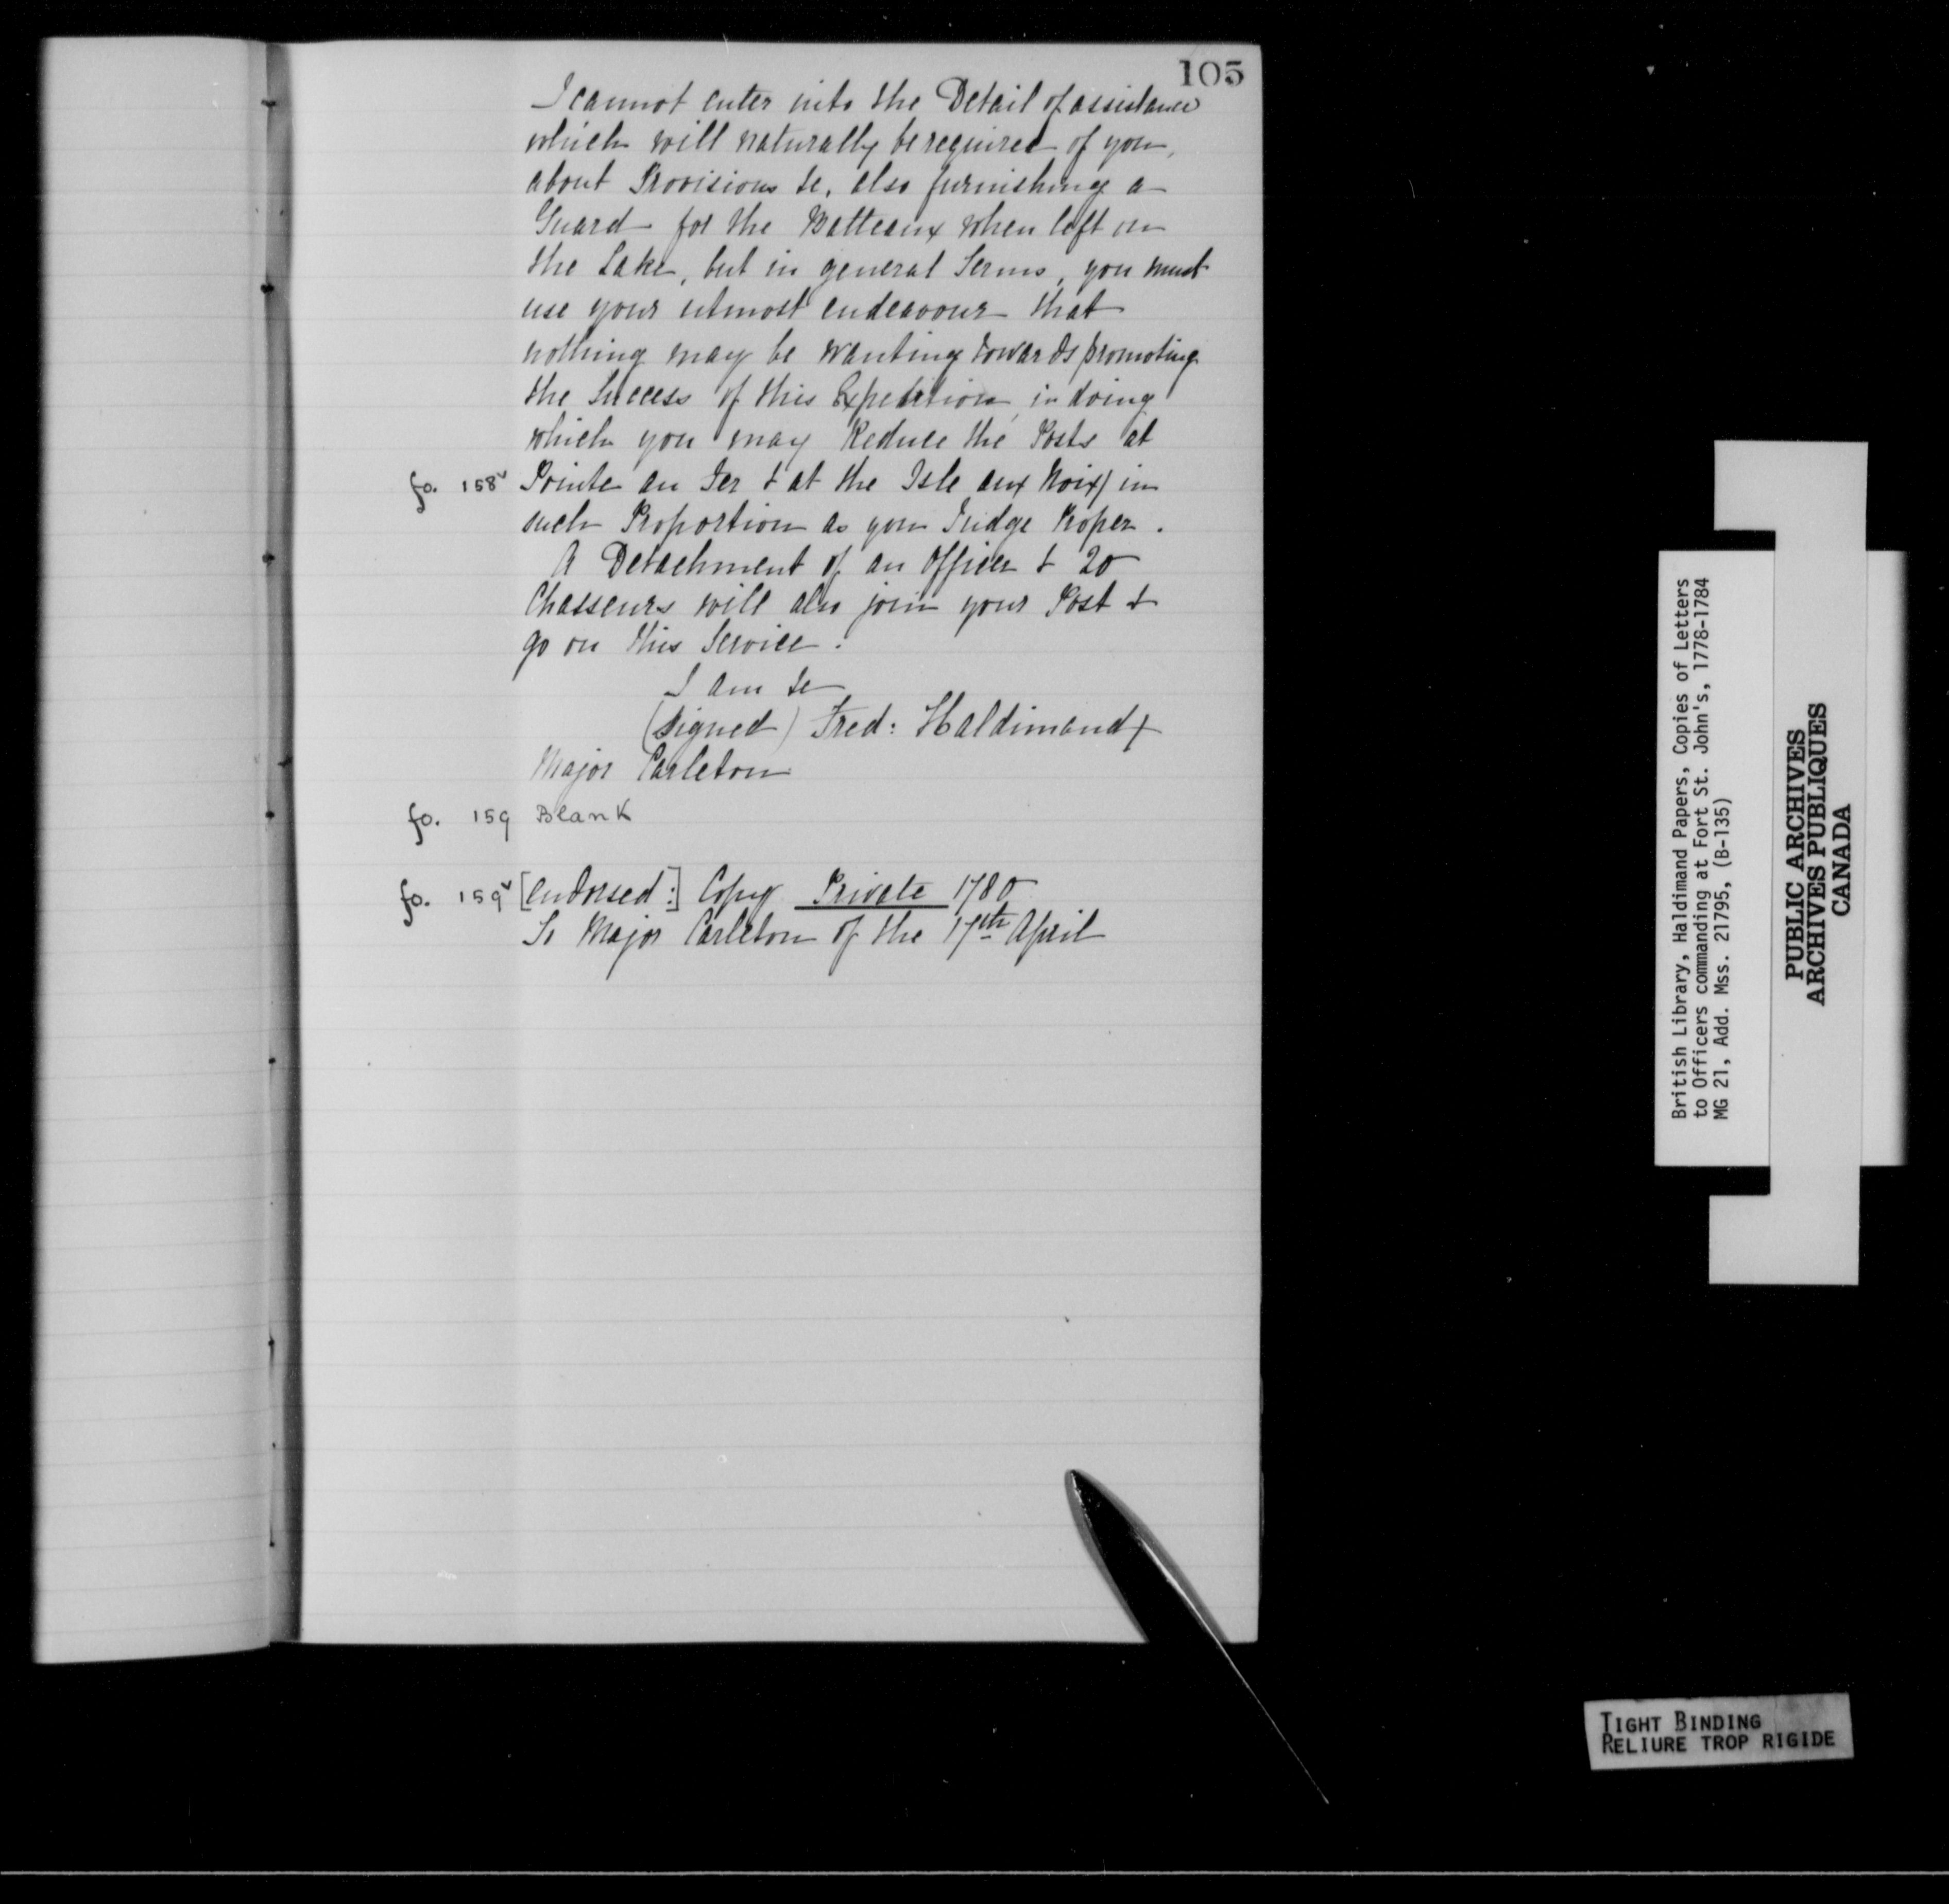 105
I cannot enter into the Detail of assistance
which will naturally be required of you,
about Provisions &c, also furnishing a
Guard for the Batteaux when left on
the Lake, but in general Terms, you must
use your utmost endeavour that
nothing may be wanting towards promoting
the Success of this Expedition, in doing
which you may Reduce the Posts at
fo. 158v Pointe au Fer & at the Isle aux Noix / in
such Proportion as you Judge Proper.
A Detachment of an Officer & 20
Chasseurs will also join your Post &
go on this Service.
I am &c
(Signed) Fred: Haldimand
Major Carleton
fo. 159 Blank
fo. 159v [Endorsed:] Copy Private 1780
To Major Carleton of the 17th April
British Library, Haldimand Papers, Copies of Letters
to Officers commanding at Fort St. John's, 1778-1784
MG 21, Add. Mss. 21795, (B-135)
PUBLIC ARCHIVES
ARCHIVES PUBLIQUES
CANADA
TIGHT BINDING
RELIURE TROP RIGIDE